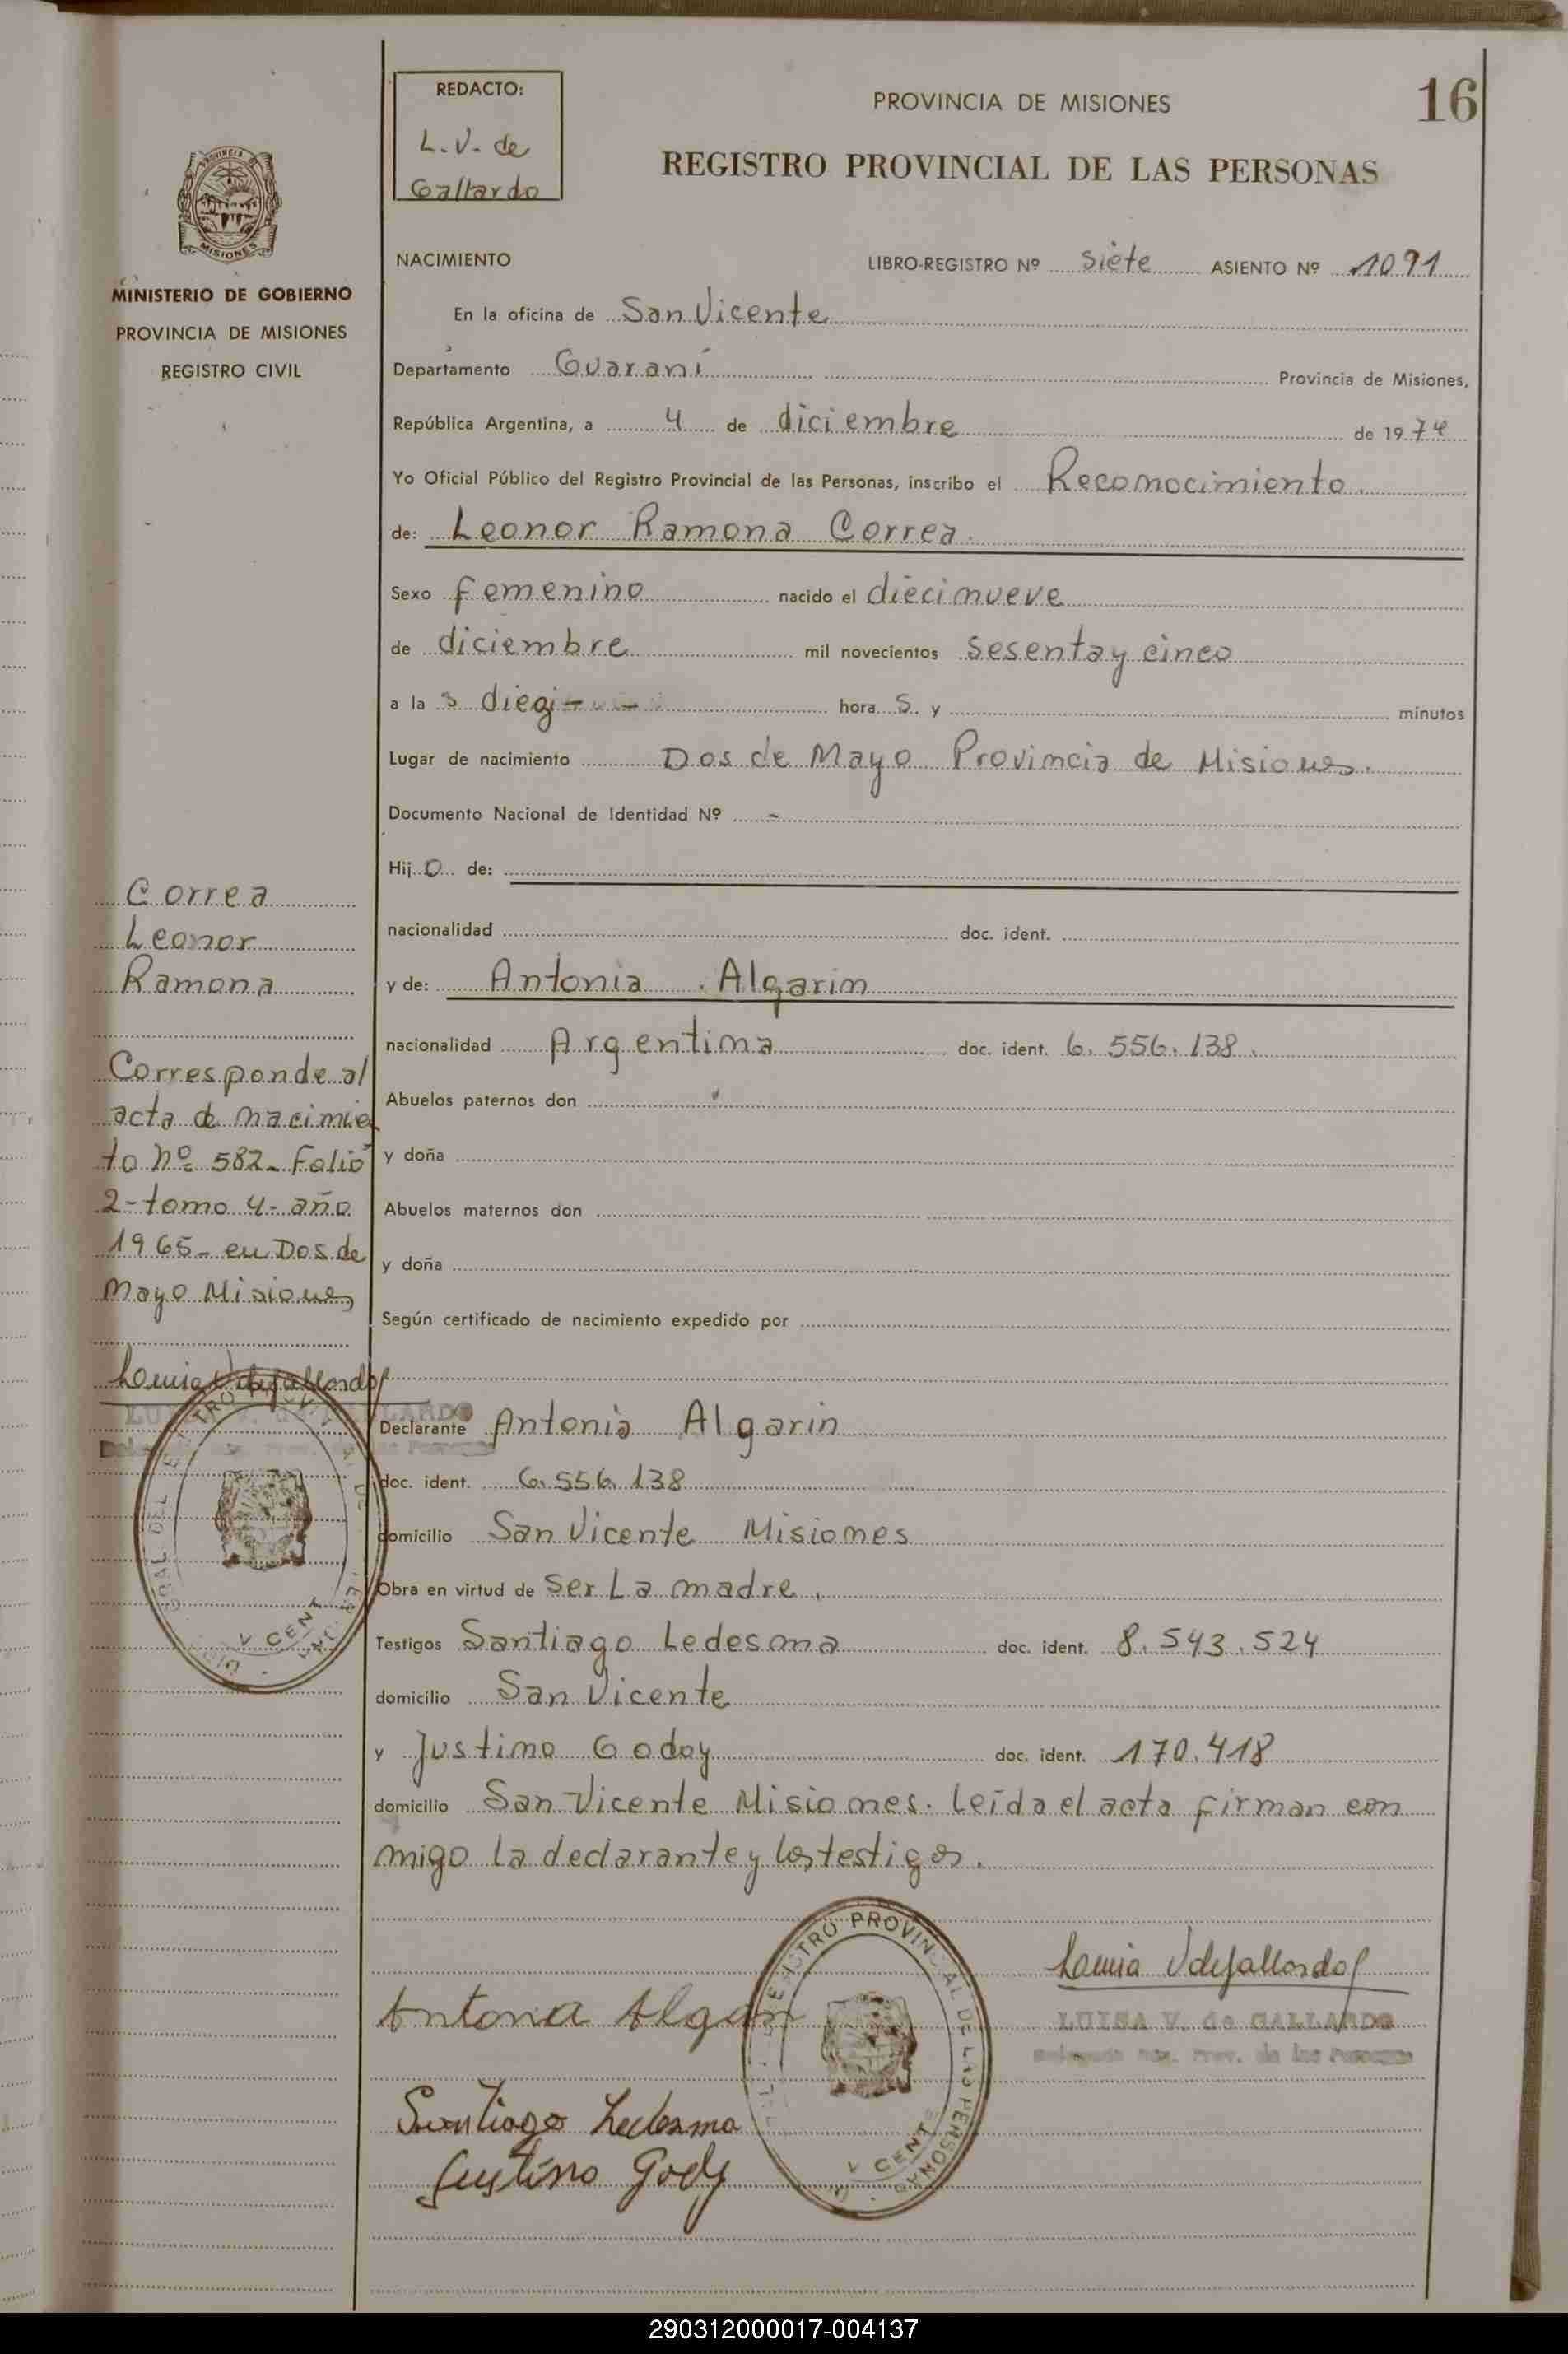 REDACTO:
L.V. de
Gallardo
PROVINCIA DE MISIONES
16
REGISTRO PROVINCIAL DE LAS PERSONAS
PROVINCIA DE
MISIONES
MINISTERIO DE GOBIERNO
PROVINCIA DE MISIONES
REGISTRO CIVIL
NACIMIENTO LIBRO-REGISTRO Nº siete ASIENTO Nº 1091
En la oficina de San Vicente
Departamento Guaraní Provincia de Misiones,
República Argentina, a 4 de diciembre de 1974
Yo Oficial Público del Registro Provincial de las Personas, inscribo el Reconocimiento.
de: Leonor Ramona Correa.
Sexo femenino nacido el diecinueve
de diciembre mil novecientos sesenta y cinco
a la s diez - - hora s y minutos
Lugar de nacimiento Dos de Mayo Provincia de Misiones.
Documento Nacional de Identidad Nº -
Hij o de:
nacionalidad doc. ident.
y de: Antonia Algarin
nacionalidad Argentina doc. ident. 6.556.138.
Abuelos paternos don
y doña
Abuelos maternos don
y doña
Según certificado de nacimiento expedido por
Declarante Antonia Algarin
doc. ident. 6.556.138
domicilio San Vicente Misiones
Obra en virtud de ser La madre.
Testigos Santiago Ledesma doc. ident. 8.543.524
domicilio San Vicente
y Justino Godoy doc. ident. 170.418
domicilio San Vicente Misiones. Leída el acta firman con
migo la declarante y los testigos.
Correa
Leonor
Ramona
Corresponde al
acta de nacimien
to nº 582- Folio
2- tomo 4- año
1965- en Dos de
Mayo Misiones
Luisa V de Gallardo
LUISA V. de GALLARDO
Antonia Algarin
REGISTRO PROVINCIAL DE LAS PERSONAS
V CENTE
Luisa V de Gallardo
LUISA V. de GALLARDO
Delegada Reg. Prov. de las Personas
Santiago Ledesma
Justino Gody
290312000017-004137